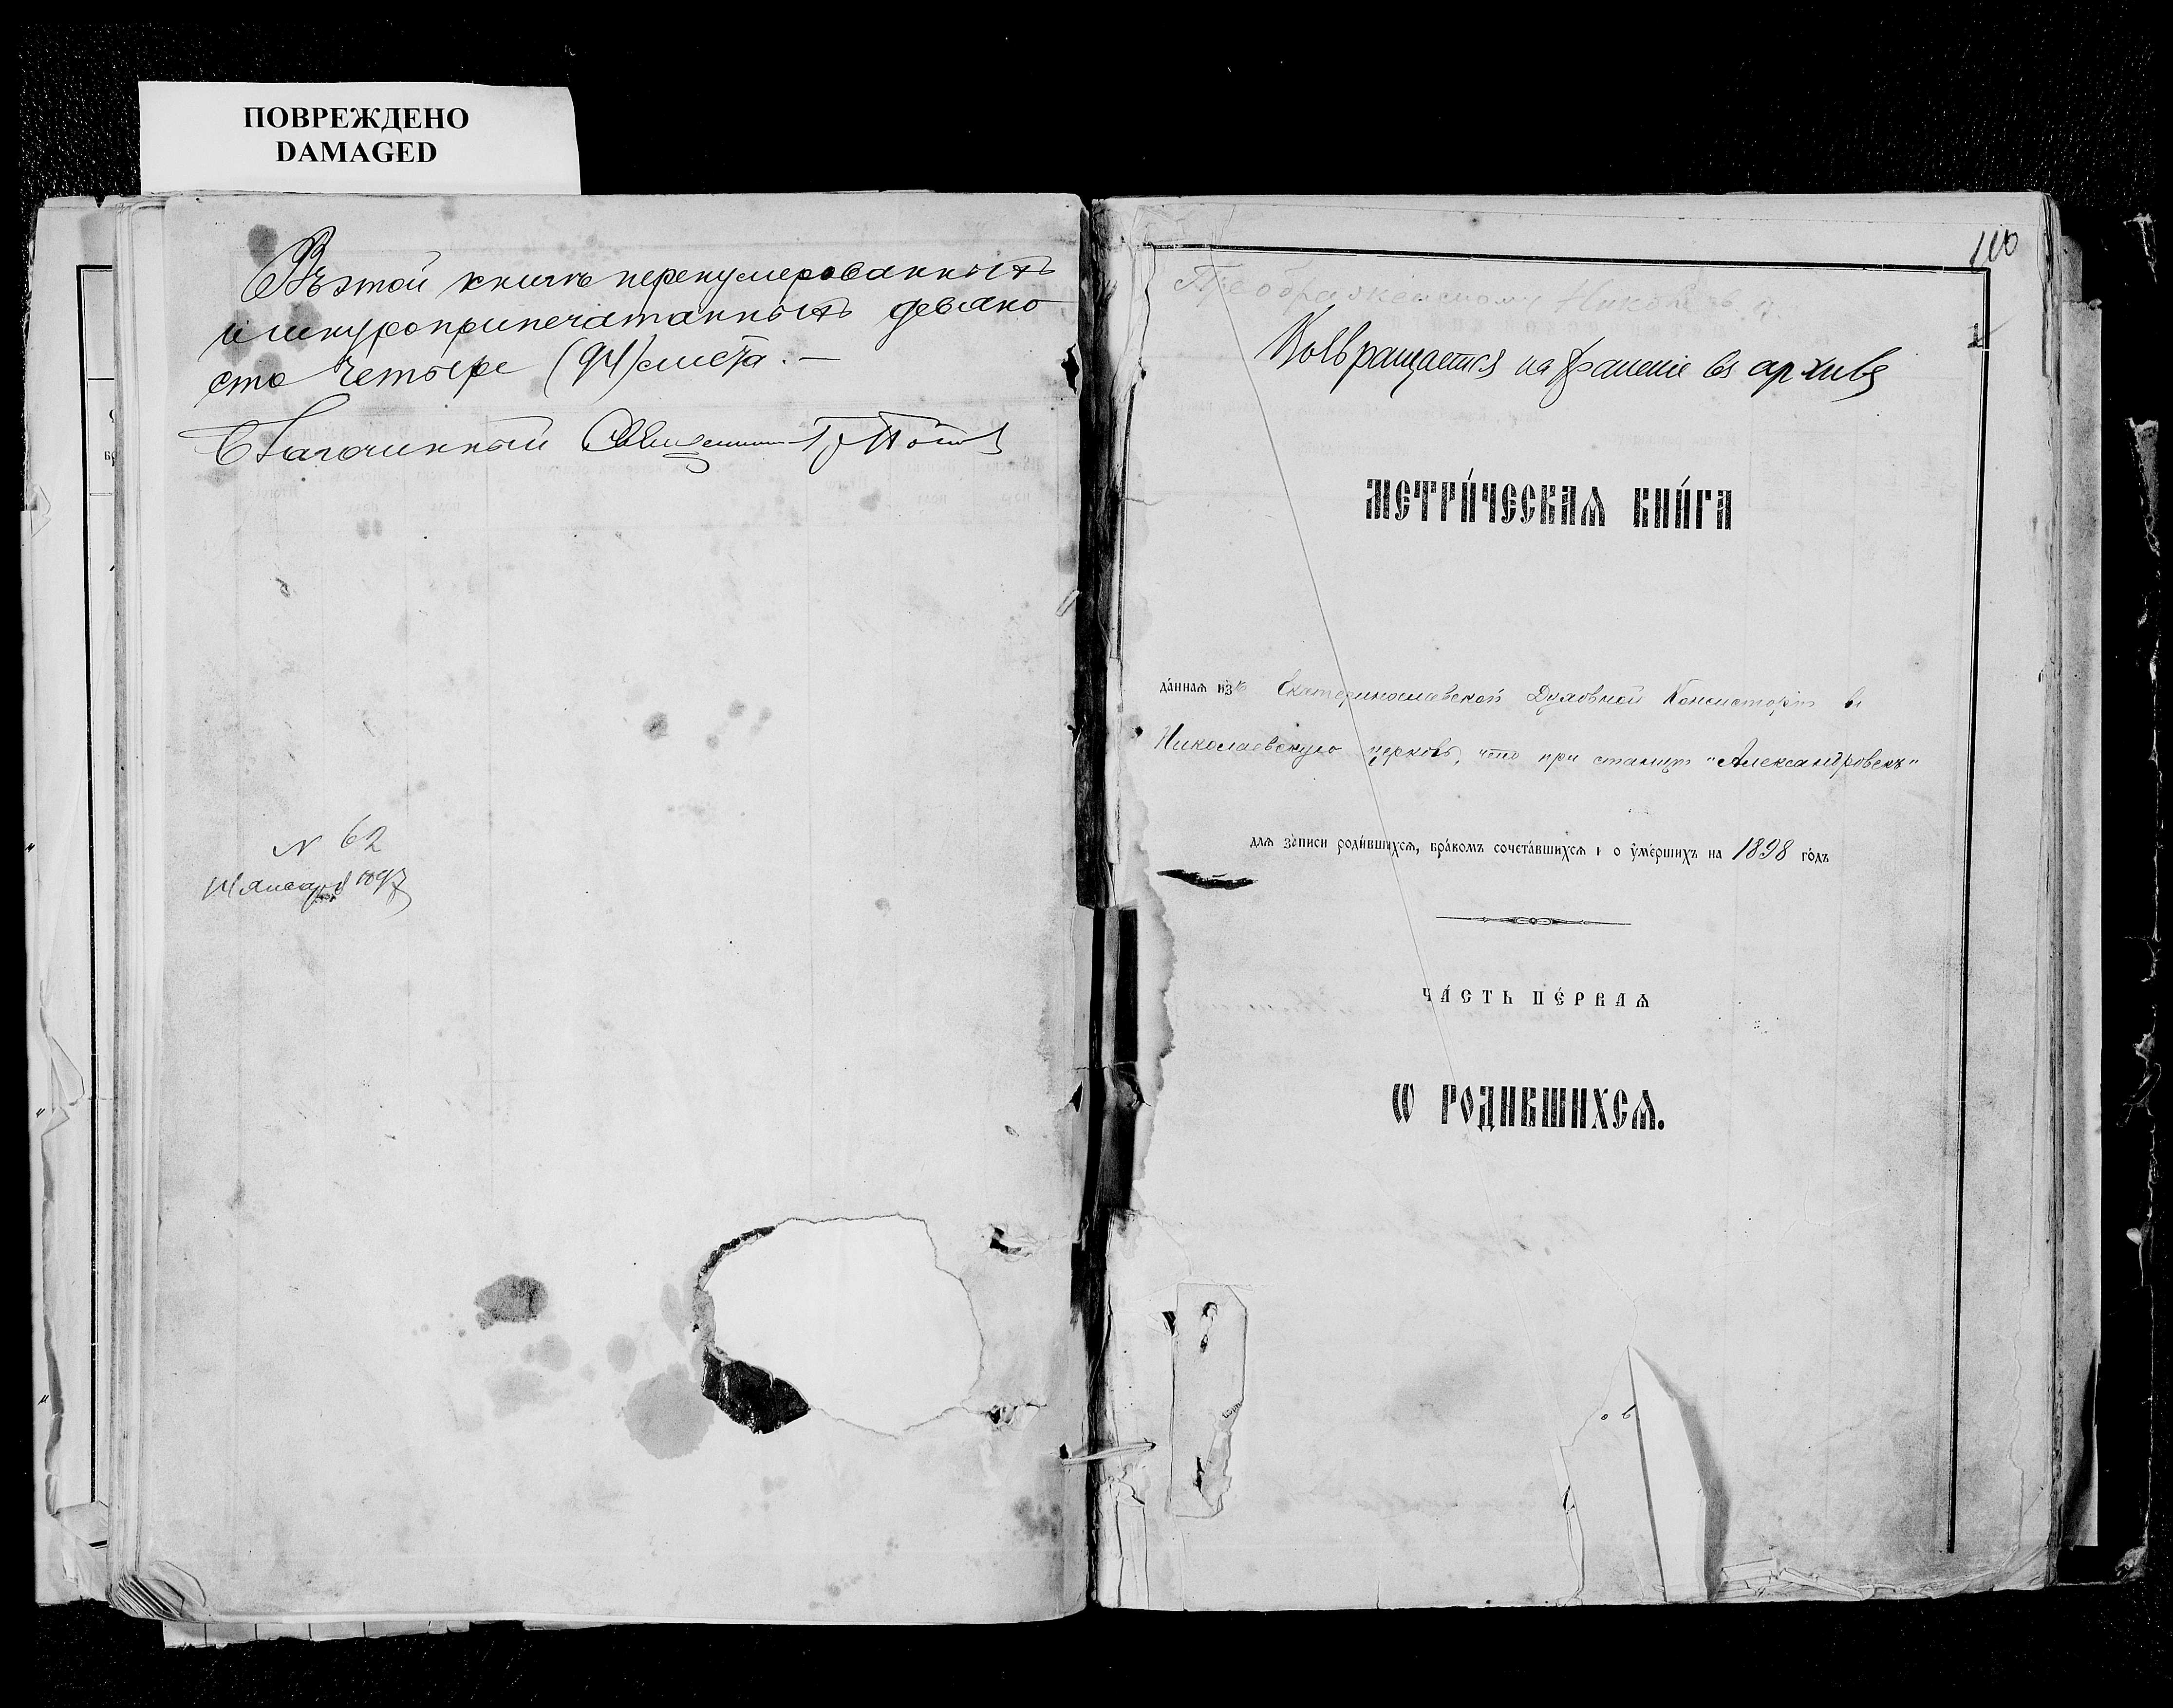 ПОВРЕЖДЕНО
DAMAGED
Въ этой книгѣ перенумерованныхъ
и шнуроприпечатанныхъ девяно
сто четыре (94) листа. —
Благочинный Священникъ
N 62
14 Января 1897
110
Преображенскому
Возвращается на храненіе въ архивъ
МЕТРИ́ЧЕСКАѦ КНИ́ГА
да́ннаѧ изъ Екатеринославской Духовной Консисторіи въ
Николаевскую церковь, что при станціи "Александровскъ"
для за́писи роди́вшихсѧ, бра́комъ сочета́вшихсѧ и о ᲂуме́ршихъ на 1898 го́дъ
ЧА́СТЬ ПЕ́РВАѦ
Ѡ РОДИВШИХСѦ.